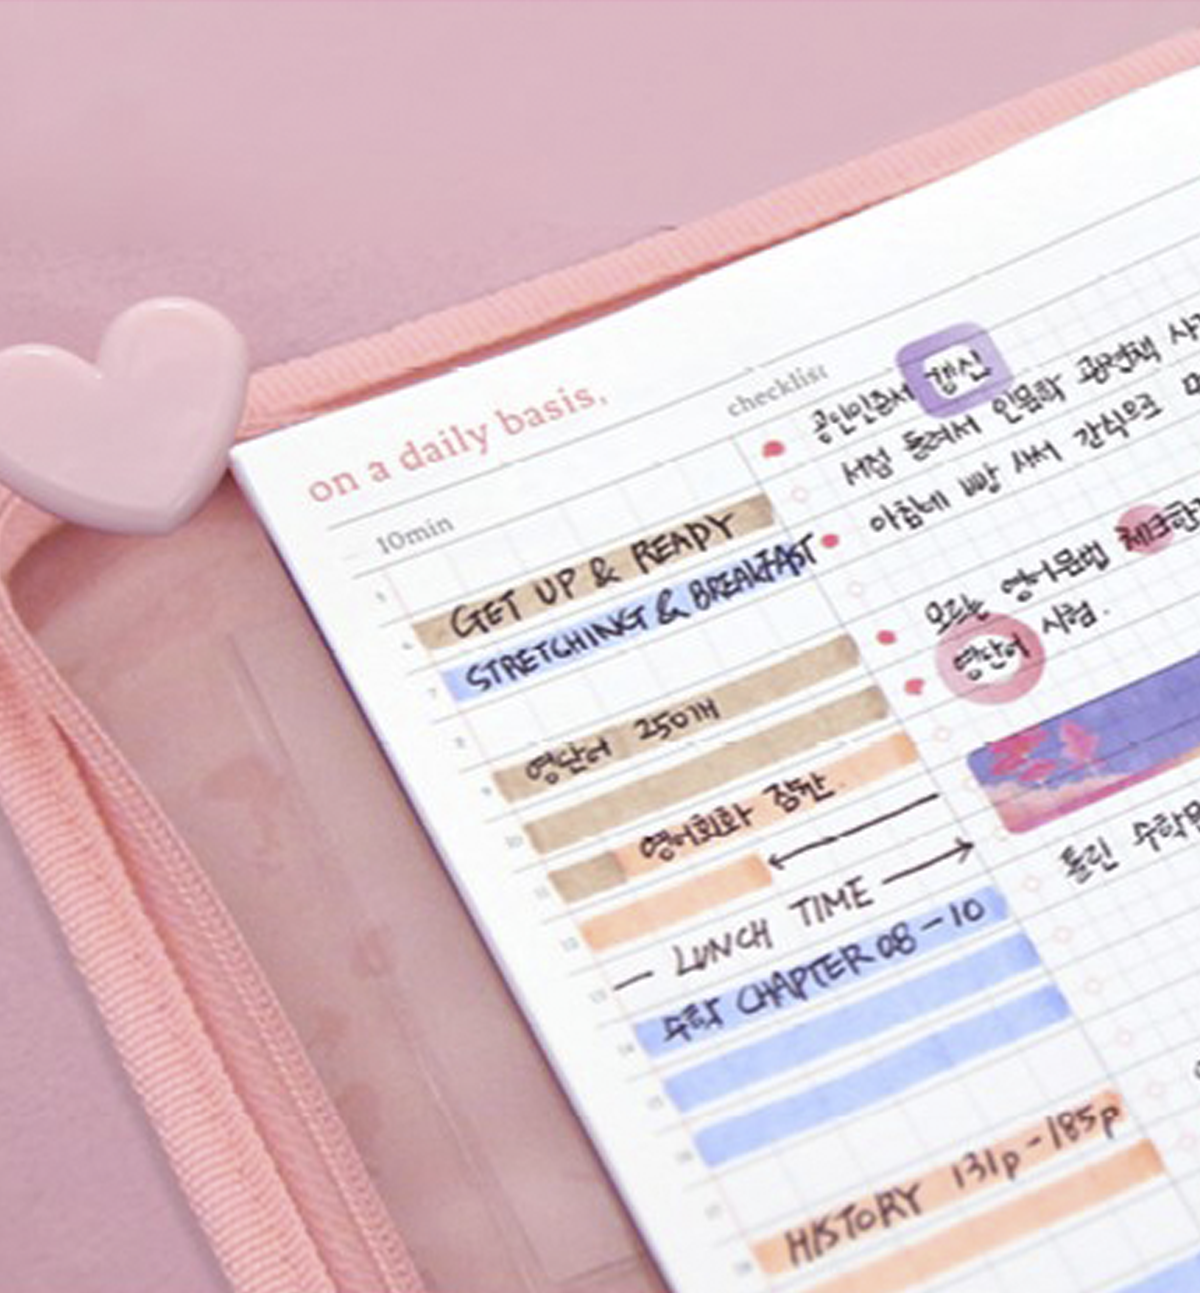 on a daily basis,
10min
checklist
GET UP & READY
STRETCHING & BREAKFAST
영단어 250개
영어회화 잠깐.
LUNCH TIME
수학 CHAPTER 08-10
HISTORY 131p-185p
공인인증서 갱신
서점 들려서 인문학 공연책
아침에 빵 사서 간식으로
모르는 영어문법 체크한거
영단어 시험.
틀린 수학